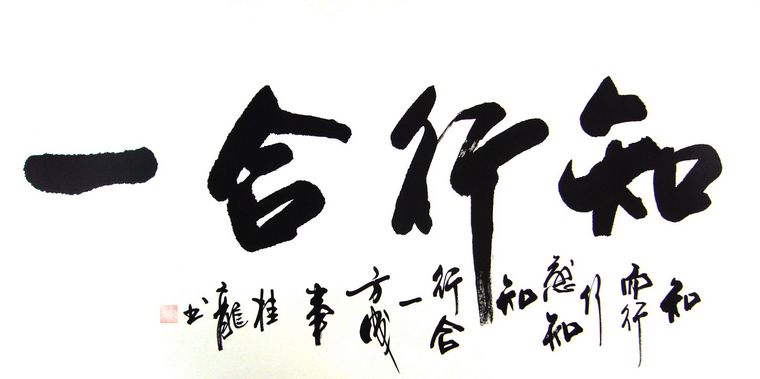 知行合一
知而行行感知知行合一方成事桂龍书